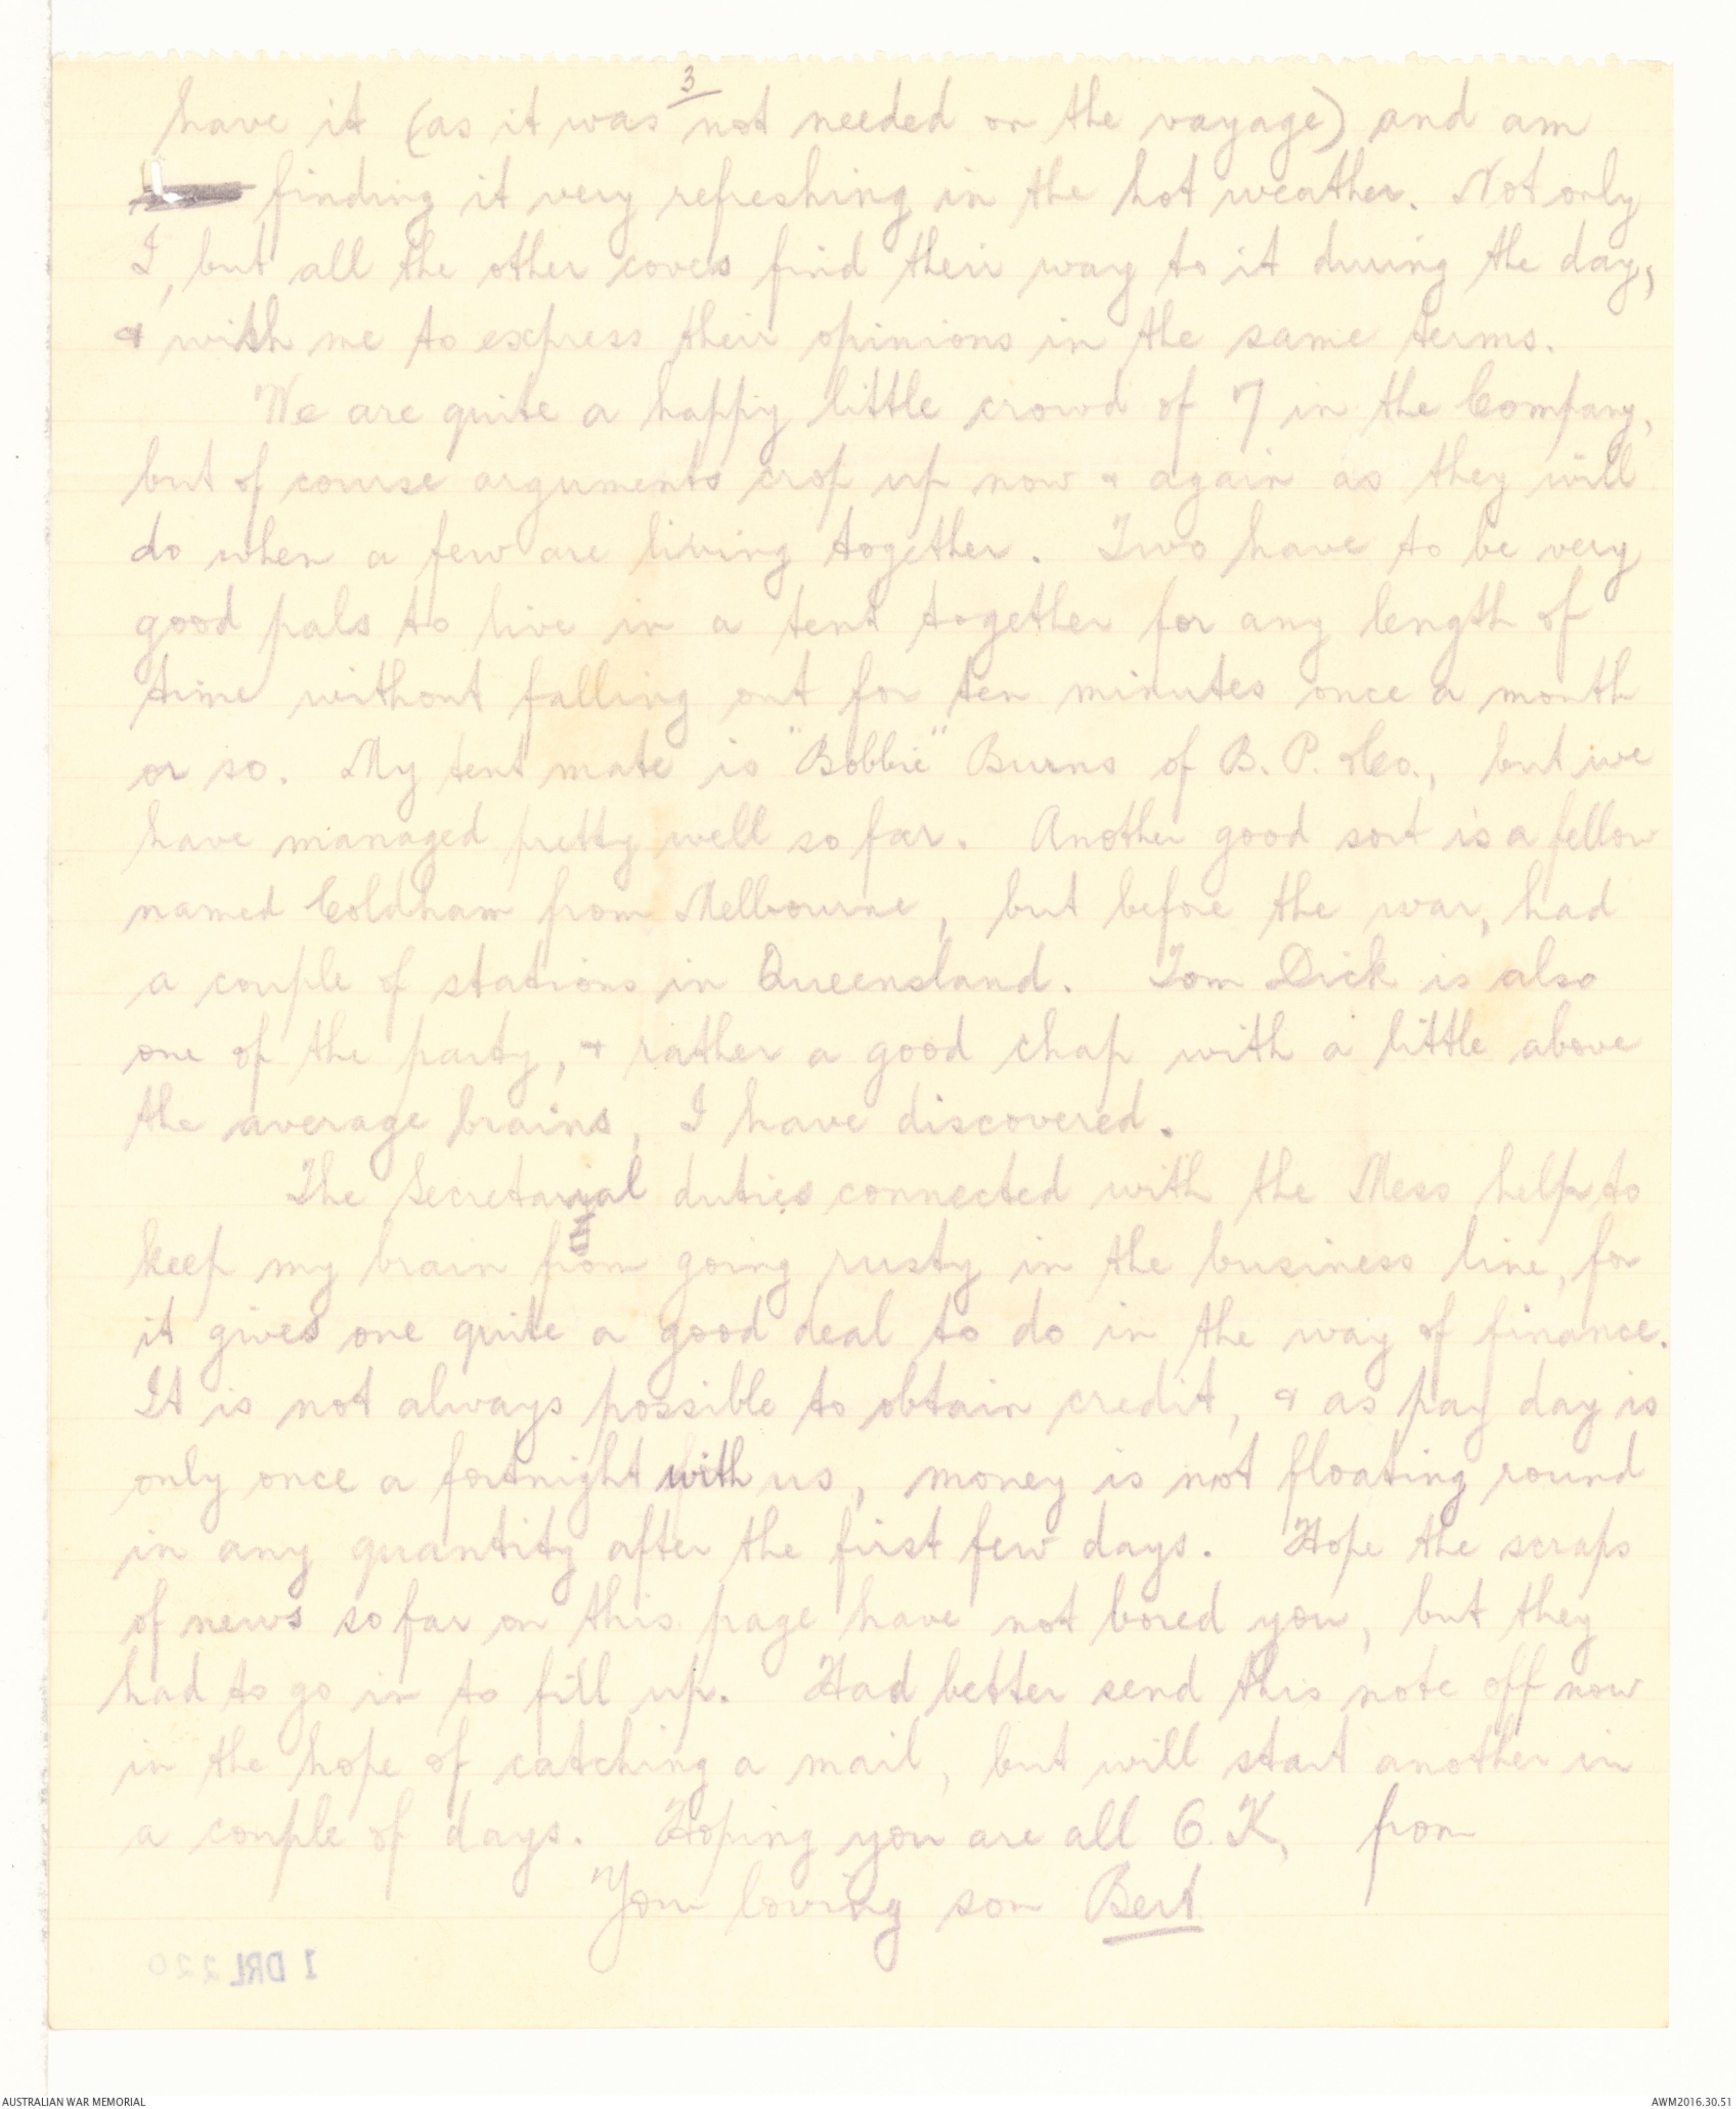 3
have it (as it was not needed on the voyage) and am
finding it very refreshing in the hot weather. Not only
I, but all the other coves find their way to it during the day,
& wish me to express their opinions in the same terms.
We are quite a happy little crowd of 7 in the Company,
but of course arguments crop up now & again as they will
do when a few are living together. Two have to be very
good pals to live in a tent together for any length of
time without falling out for ten minutes once a month
or so. My tent mate is "Bobbie" Burns of B. P. & Co., but we
have managed pretty well so far. Another good sort is a fellow
named Coldham from Melbourne, but before the war, had
a couple of stations in Queensland. Tom Dick is also
one of the party, & rather a good chap with a little above
the average brains, I have discovered.
The Secretarial duties connected with the Mess help to
keep my brain from going rusty in the business line, for
it gives one quite a good deal to do in the way of finance.
It is not always possible to obtain credit, & as pay day is
only once a fortnight with us, money is not floating round
in any quantity after the first few days. Hope the scraps
of news so far on this page have not bored you, but they
had to go in to fill up. Had better send this note off now
in the hope of catching a mail, but will start another in
a couple of days. Hoping you are all O.K, from
Your loving son Bert
1 DRL 220
AUSTRALIAN WAR MEMORIAL
AWM2016.30.51